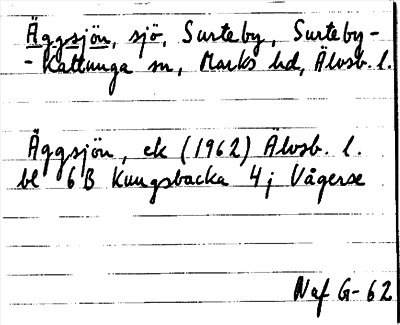 Äggsjön, sjö, Surteby, Surteby-
- Kattunga sn, Marks hd, Älvsb. l.
Äggsjön, ek (1962) Älvsb. l.
bl 6B Kungsbacka 4j Vågerse
Naf G-62